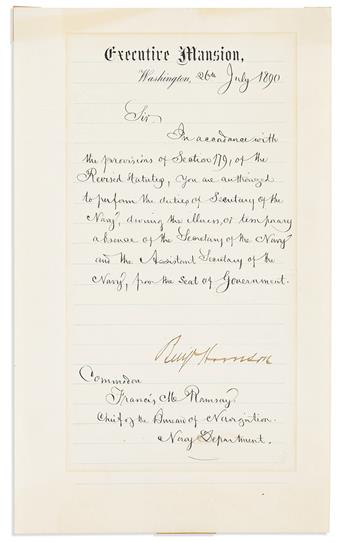 Executive Mansion,
Washington, 26th July 1890
Sir,
In accordance with
the provisions of Section 179, of the
Revised Statutes, You are authorized
to perform the duties of Secretary of the
Navy, during the illness, or temporary
absence of the Secretary of the Navy
and the Assistant Secretary of the
Navy, from the seat of Government.
Benj Harrison
Commodore
Francis M. Ramsay,
Chief of the Bureau of Navigation.
Navy Department.